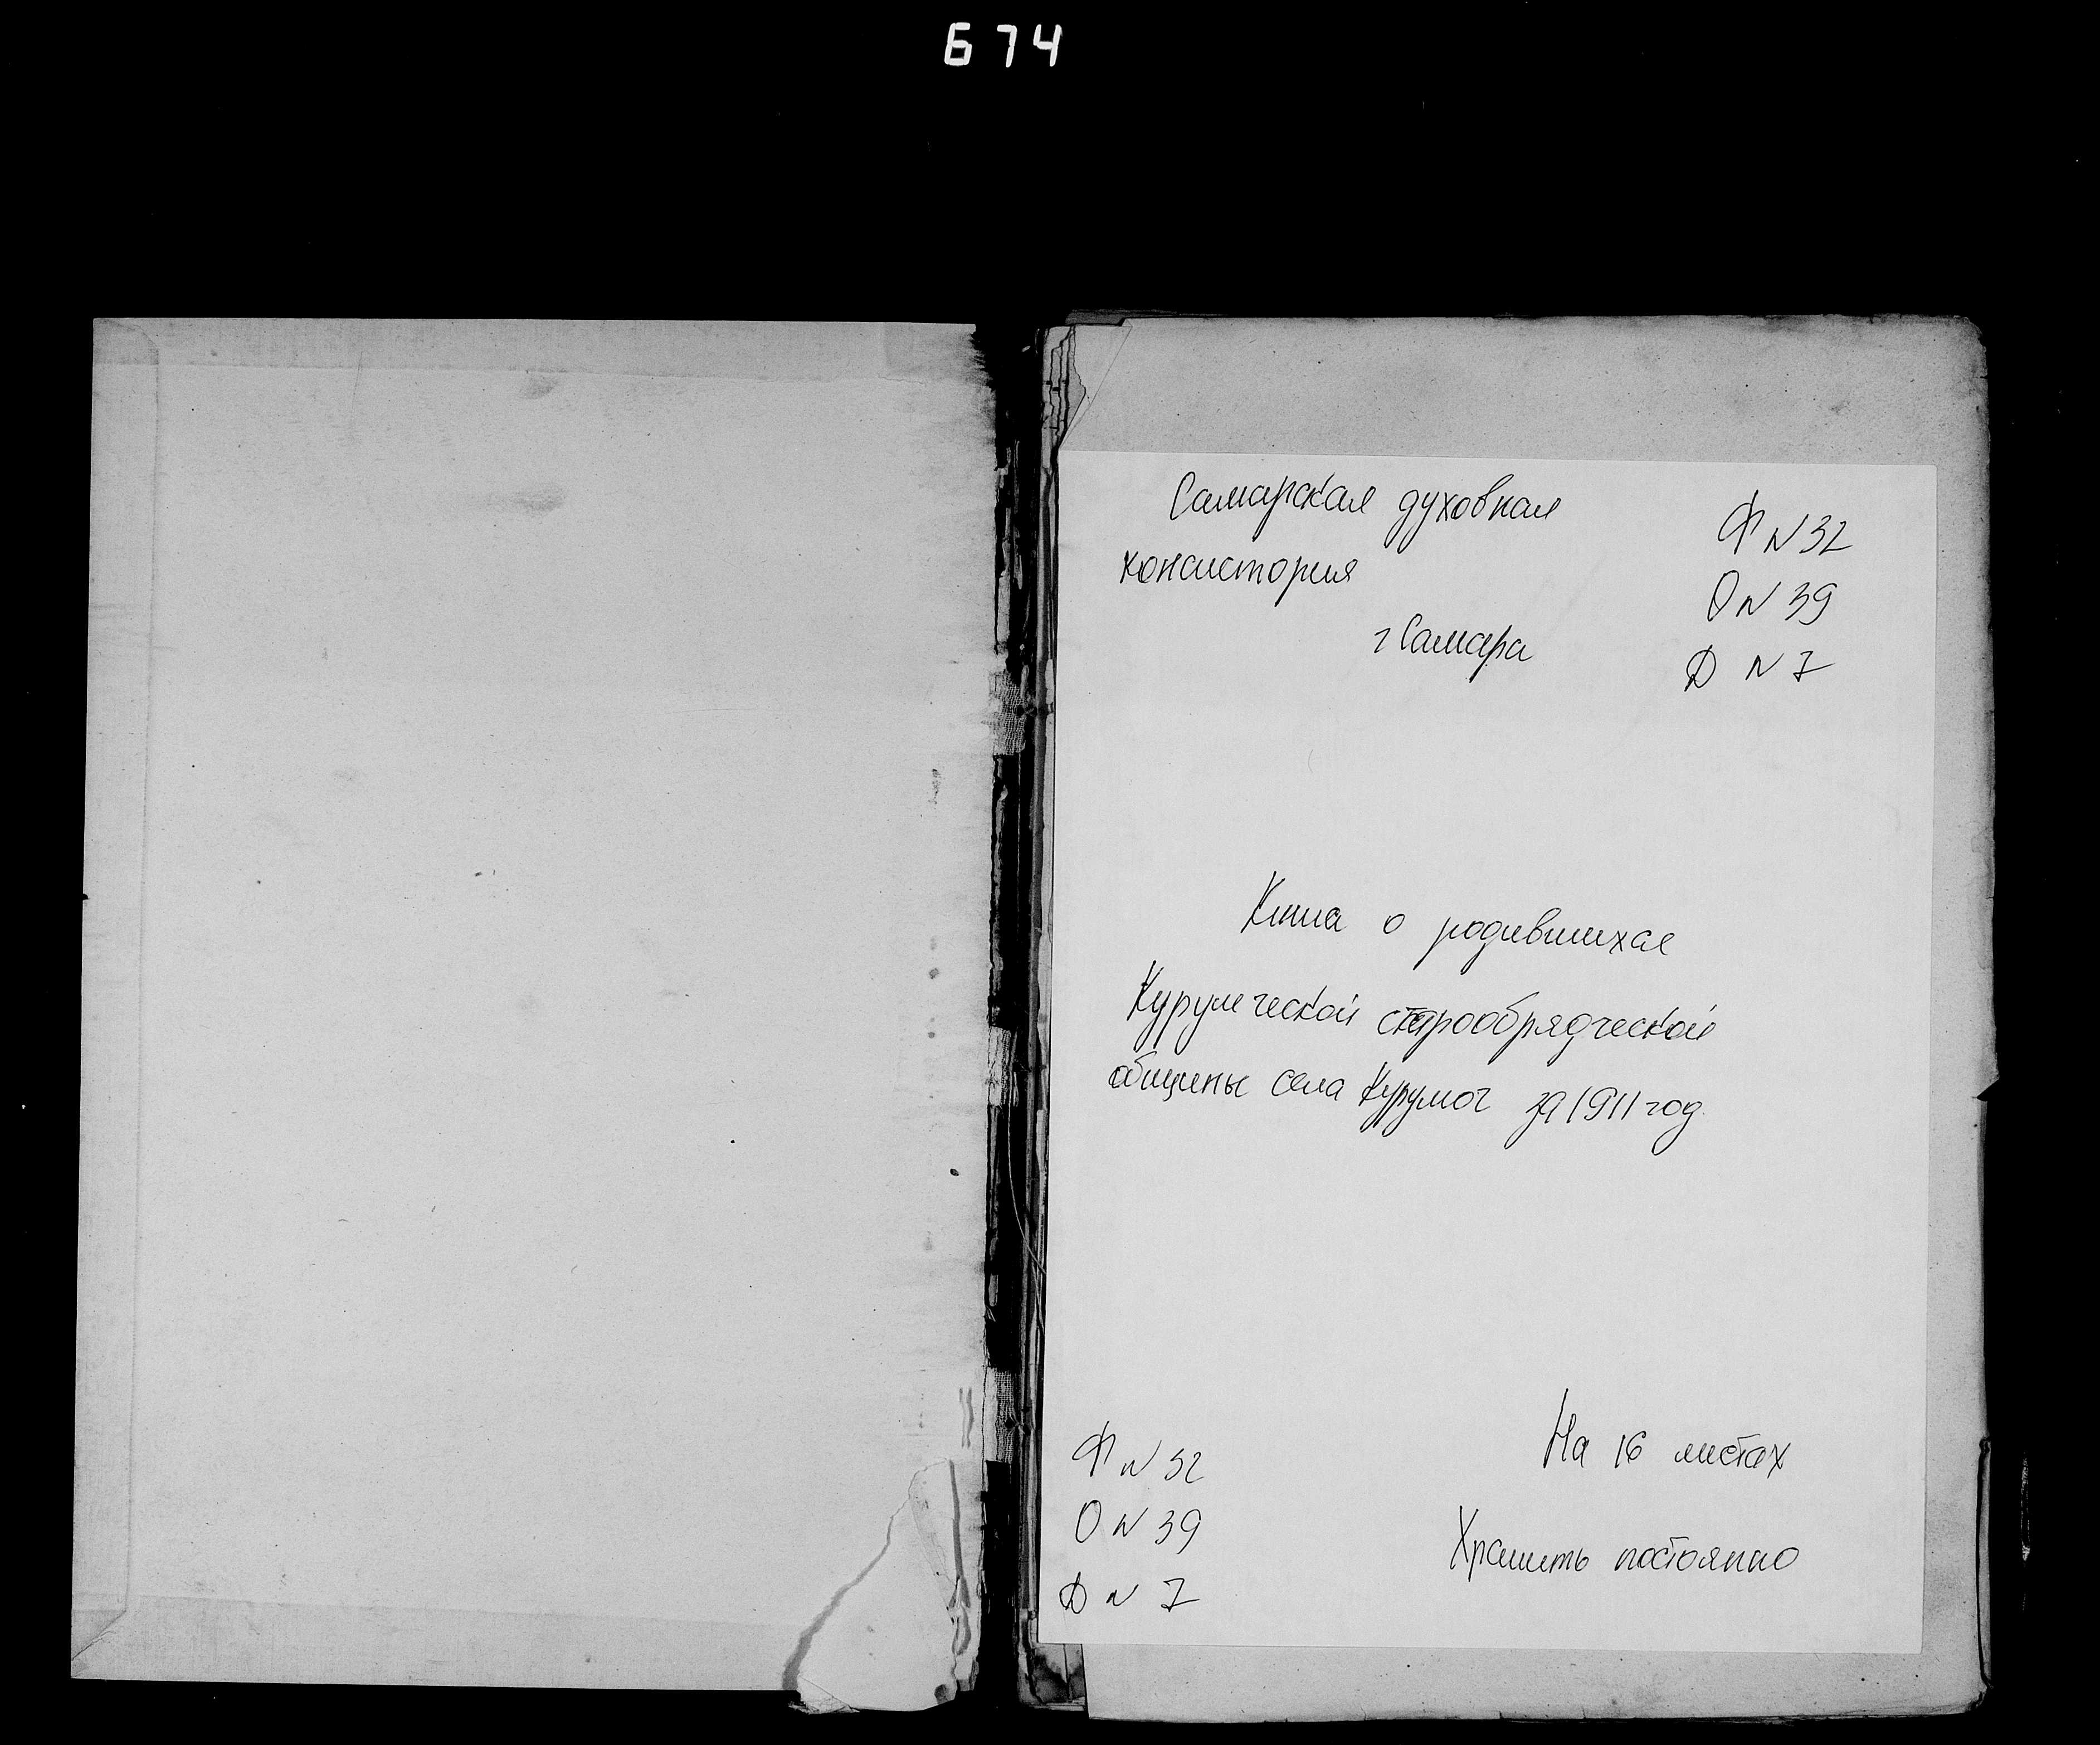 674
Самарская духовная
консистория
г Самара
Ф N 32
О N 39
Д N 7
Книга о родившихся
Курумческой старообрядческой
общины села Курумоч за 1911 год.
На 16 листах
Хранить постоянно
Ф N 32
О N 39
Д N 7